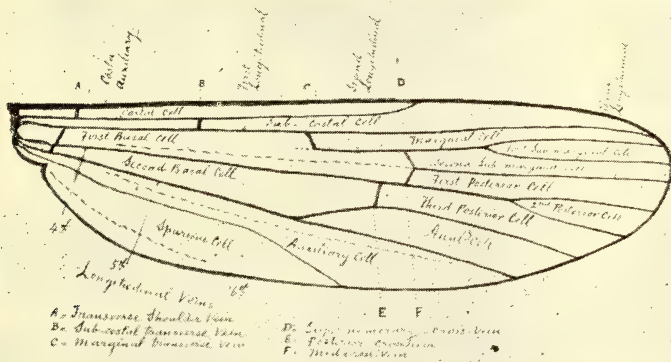 Costa
Auxiliary
First
Longitudinal
Second
Longitudinal
Third
Longitudinal
A
B
C
D
Costal Cell
Sub-Costal Cell
First Basal Cell
Marginal Cell
1st Sub marginal Cell
Second Sub marginal Cell
Second Basal Cell
First Posterior Cell
2nd Posterior Cell
Third Posterior Cell
Anal Cell
Spurious Cell
Auxiliary Cell
4th
5th
6th
Longitudinal Veins
E F
A = Transverse Shoulder Vein
B = Sub-costal transverse Vein
C = Marginal transverse Vein
D = Supernumerary cross-vein
E = Posterior crossvein
F =